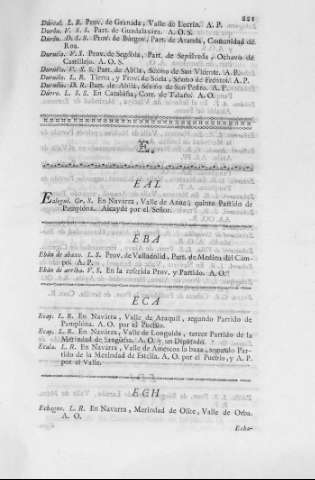 221
Dúrcal. L. R. Prov. de Granada, Valle de Lecrin. A. P.
Durón. V. S. S. Part. de Guadalaxara. A. O. S.
Prov. de Burgos, Part. de Aranda, Comunidad de
Roa.
V. S. Prov. de Segovia, Part. de Sepúlveda, Ochavo de
Castillejo. A. O. S.
V. S. Part. de Abila, Sésmo de San Vicente. A. P.
L. R. Tierra, y Prov. de Soria, Sésmo de Frentes. A. P.
D. R. Part. de Abila, Sésmo de San Pedro. A. P.
L. S. S. En Cataluña, Corr. de A. O.
E.
EAL
Gr. S. En Navarra, Valle de quinto Partido de
Pamplona. Alcayde por el Señor.
EBA
Ebán de abaxo. L. S. Prov. de Valladolid, Part. de Medina del Campo. A. P.
Ebán de arriba. V. S. En la referida Prov. y Partido. A. O.
ECA
Ecay. L. R. En Navarra, Valle de Araquil, segundo Partido de
Pamplona. A. O. por el Pueblo.
Ecay. L. R. En Navarra, Valle de Longuida, tercer Partido de la
Merindad de Sangüesa. A. O. y un Diputado.
Ecala. L. R. En Navarra, Valle de Amescoa la baxa, segundo Par-
tido de la Merindad de Estella. A. O. por el Pueblo, y A. P.
por el Valle.
ECH
Echagüe. L. R. En Navarra, Merindad de Olite, Valle de Orba.
A. O.
Echa-